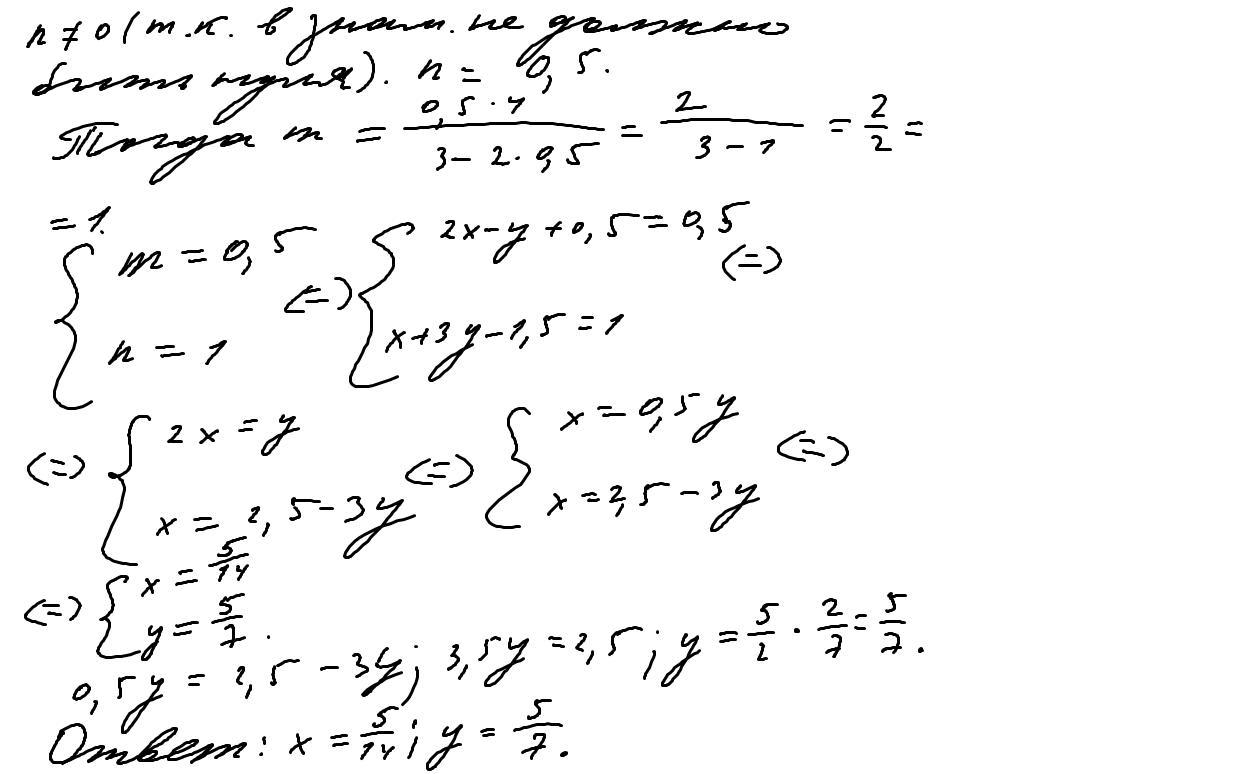 n ≠ 0 (т.к. в знам. не должно
быть нуля). n = 0,5.
Тогда m = (0,5 · 4)/(3 - 2 · 0,5) = 2/(3 - 1) = 2/2 =
= 1.
{ m = 0,5 <=> { 2x - y + 0,5 = 0,5 <=>
n = 1 x + 3y - 1,5 = 1
<=> { 2x = y <=> { x = 0,5y <=>
x = 2,5 - 3y x = 2,5 - 3y
<=> { x = 5/14
y = 5/7.
0,5y = 2,5 - 3y; 3,5y = 2,5; y = 5/2 · 2/7 = 5/7.
Ответ: x = 5/14; y = 5/7.